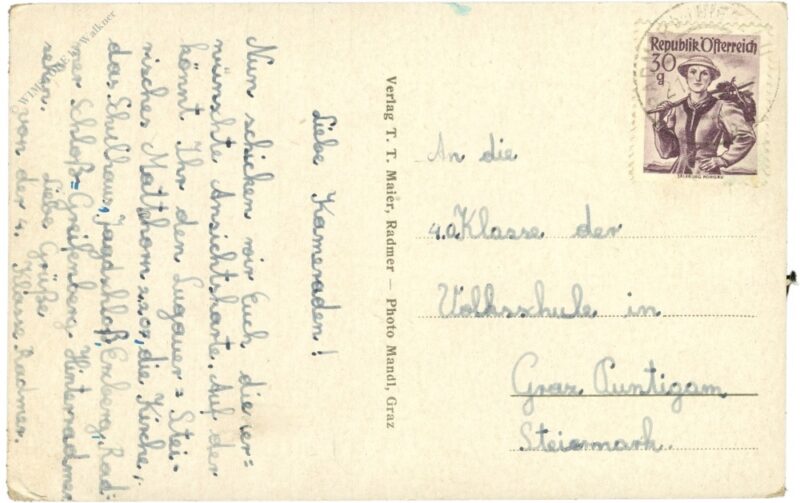 Liebe Kameraden!
Nun schicken wir Euch die er=
wünschte Ansichtskarte. Auf der
könnt Ihr den Lugauer = Stei-
risches Matterhorn 2202, die Kirche,
das Schulhaus, Jagdschloß, Rad-
mer Schloß-Greifenberg. Hinterradmer
sehen. Liebe Grüße
von der 4. Klasse Radmer.
Verlag T. T. Maier, Radmer — Photo Mandl, Graz
An die
4.a Klasse der
Volksschule in
Graz Puntigam
Steiermark.
Republik Österreich
30
g
SALZBURG PONGAU
© Walkner